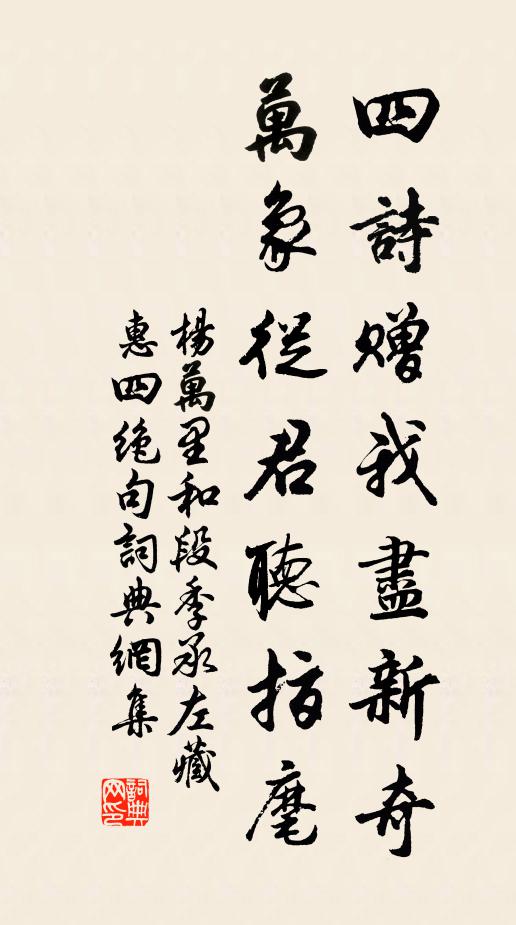 四詩贈我盡新奇
萬象從君聽指麾
楊萬里和段季承左藏
惠四絶句詞典網集
詞典网印